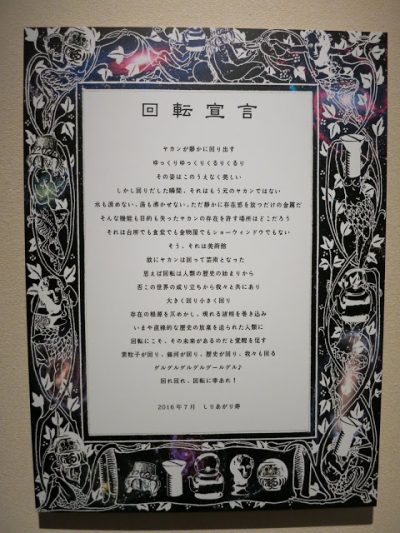 回転宣言
ヤカンが静かに回り出す
ゆっくりゆっくりくるりくるり
その姿はこのうえなく美しい
しかし回りだした瞬間、それはもう元のヤカンではない
水も温めない、湯も沸かせない、ただ静かに存在感を放つだけの金属だ
そんな機能も目的も失ったヤカンの存在を許す場所はどこだろう
それは台所でも食堂でも金物屋でもショーウィンドウでもない
そう、それは美術館
故にヤカンは回って芸術となった
思えば回転は人類の歴史の始まりから
否この世界の成り立ちから我々と共にあり
大きく回り小さく回り
存在の根源を仄めかし、現れる諸相を巻き込み
いまや直線的な歴史の放棄を迫られた人類に
回転にこそ、その未来があるのだと覚醒を促す
素粒子が回り、銀河が回り、歴史が回り、我々も回る
グルグルグルグルグールグル♪
回れ回れ、回転に幸あれ！
2016年7月 しりあがり寿